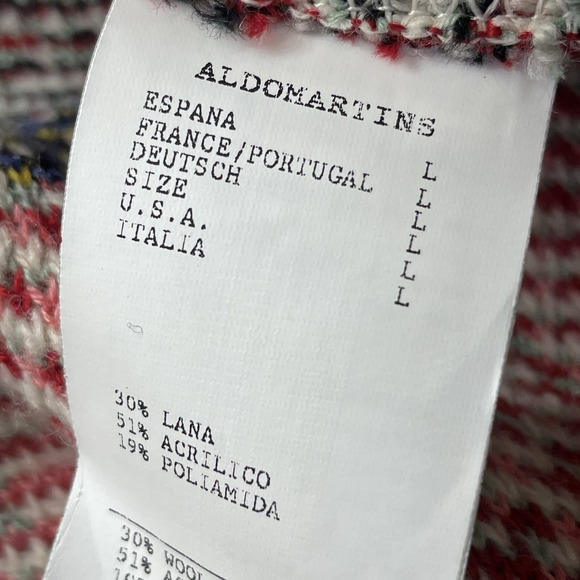 ALDOMARTINS
ESPANA L
FRANCE/PORTUGAL L
DEUTSCH L
SIZE L
U.S.A. L
ITALIA L
30% LANA
51% ACRILICO
19% POLIAMIDA
30% WOOL
51%